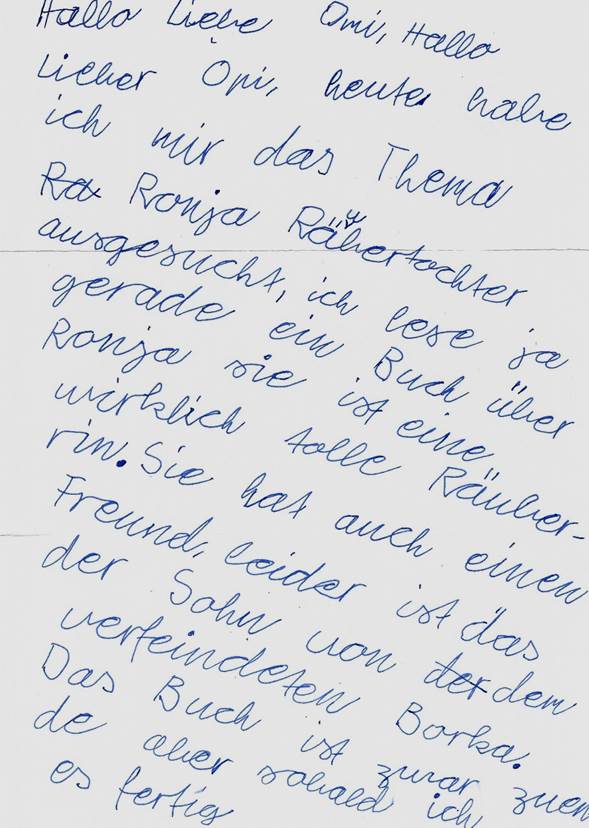 Hallo Liebe Omi, Hallo
Lieber Opi, heute habe
ich mir das Thema
Ra Ronja Räubertochter
ausgesucht, ich lese ja
gerade ein Buch über
Ronja sie ist eine
wirklich tolle Räuber-
rin. Sie hat auch einen
Freund, leider ist das
der Sohn von der dem
verfeindeten Borka.
Das Buch ist zwar zuen
de aber sobald ich
es fertig